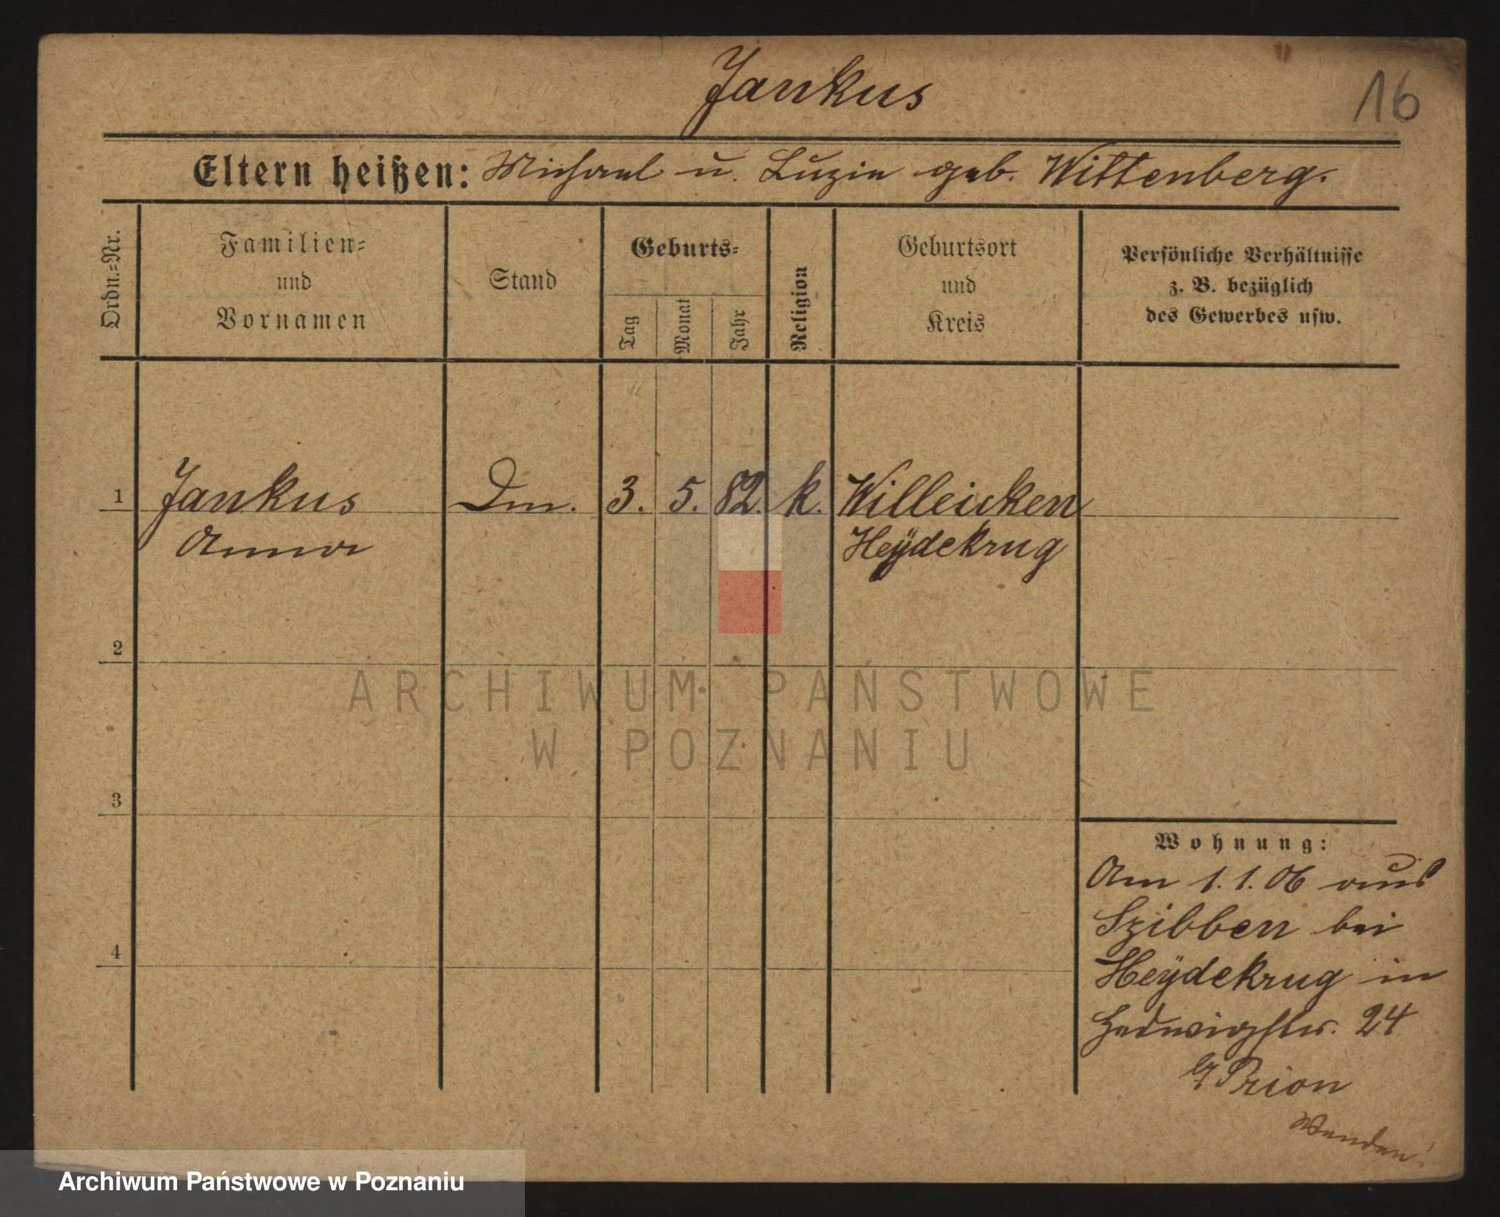 Jankus
16
Eltern heißen: Michael u. Luzie geb. Wittenberg.
Ordn.=Nr.
Familien=
und
Vornamen
Stand
Geburts=
Tag
Monat
Jahr
Religion
Geburtsort
und
Kreis
Persönliche Verhältnisse
z. B. bezüglich
des Gewerbes usw.
1 Jankus Dm. 3. 5. 82. k. Willeicken
Anna Heÿdekrug
2
ARCHIWUM PAŃSTWOWE
W POZNANIU
3
Wohnung:
Am 1.1.06 aus
Szibben bei
4
Heÿdekrug in
Hedwigstr. 24
Prion
Wenden!
Archiwum Państwowe w Poznaniu